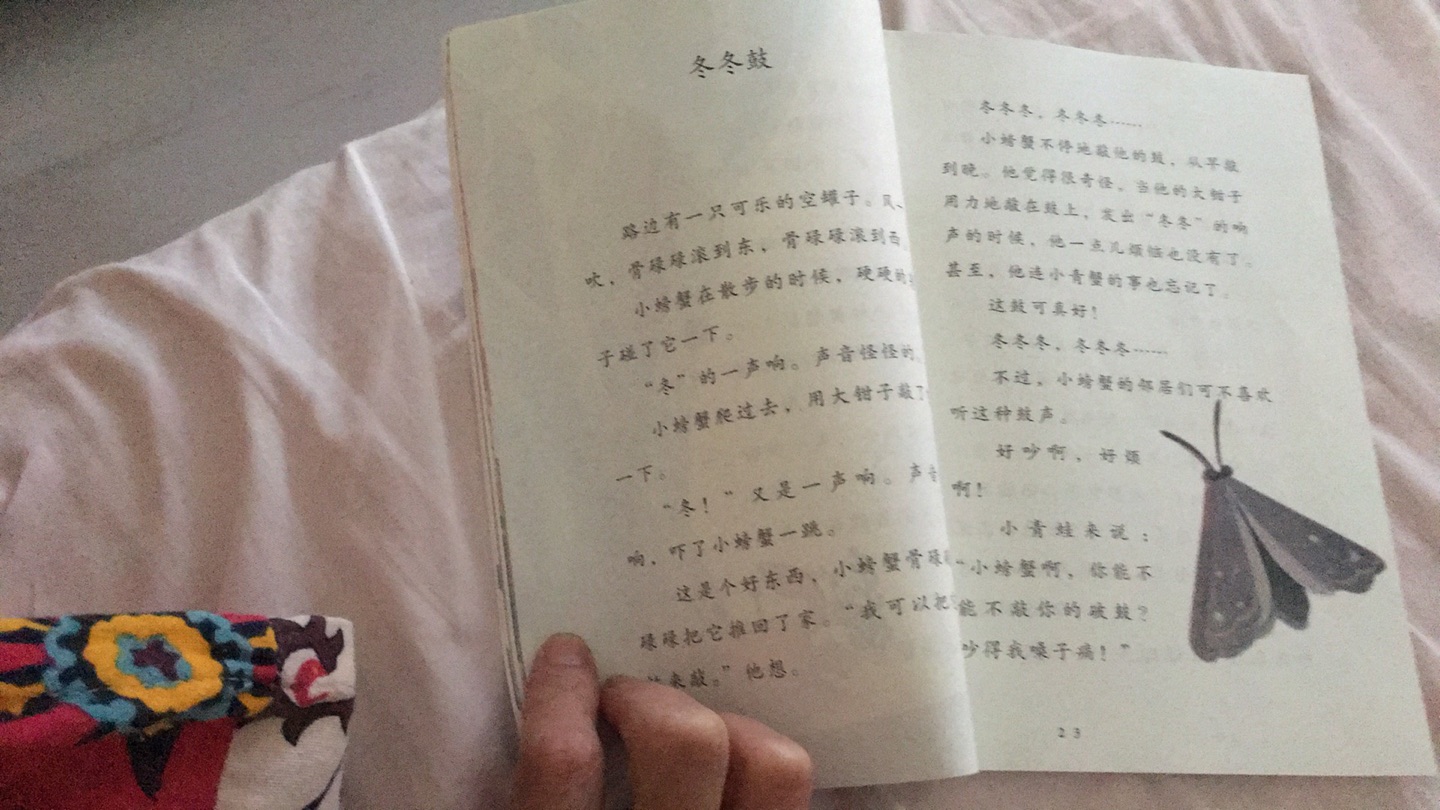 冬冬鼓
路边有一只可乐的空罐子。风
吹，骨碌碌滚到东，骨碌碌滚到西
小螃蟹在散步的时候，硬硬的
子碰了它一下。
“冬”的一声响。声音怪怪的
小螃蟹爬过去，用大钳子敲了
一下。
“冬！”又是一声响。声音
响，吓了小螃蟹一跳。
这是个好东西，小螃蟹骨碌
碌碌把它推回了家。“我可以把
来敲。”他想。
冬冬冬，冬冬冬……
小螃蟹不停地敲他的鼓，从早敲
到晚。他觉得很奇怪，当他的大钳子
用力地敲在鼓上，发出“冬冬”的响
声的时候，他一点儿烦恼也没有了。
甚至，他连小青蟹的事也忘记了。
这鼓可真好！
冬冬冬，冬冬冬……
不过，小螃蟹的邻居们可不喜欢
听这种鼓声。
好吵啊，好烦
啊！
小青蛙来说：
“小螃蟹啊，你能不
能不敲你的破鼓？
吵得我嗓子痛！”
23